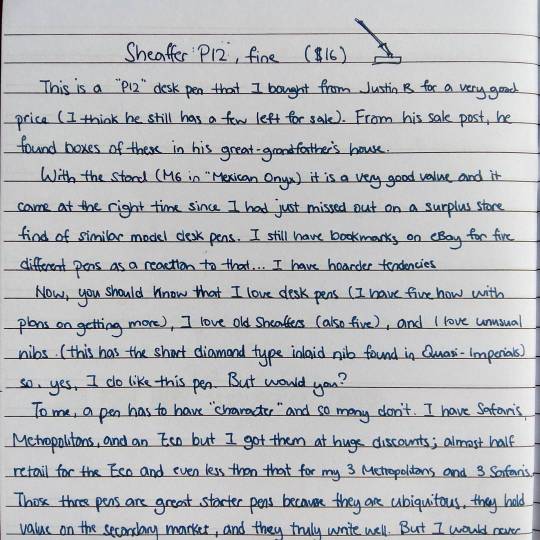 Sheaffer "P12", fine ($16)
This is a "P12" desk pen that I bought from Justin R for a very good
price (I think he still has a few left for sale). From his sale post, he
found boxes of these in his great-grandfather's house.
With the stand (M6 in "Mexican Onyx) it is a very good value and it
came at the right time since I had just missed out on a surplus store
find of similar model desk pens. I still have bookmarks on eBay for five
different pens as a reaction to that... I have hoarder tendencies
Now, you should know that I love desk pens (I have five now with
plans on getting more), I love old Sheaffers (also five), and I love unusual
nibs (this has the short diamond type inlaid nib found in Quasi-Imperials)
so, yes, I do like this pen. But would you?
To me, a pen has to have "character" and so many don't. I have Safaris,
Metropolitans, and an Eco but I got them at huge discounts; almost half
retail for the Eco and even less than that for my 3 Metropolitans and 3 Safaris.
Those three pens are great starter pens because they are ubiquitous, they hold
value on the secondary market, and they truly write well. But I would never